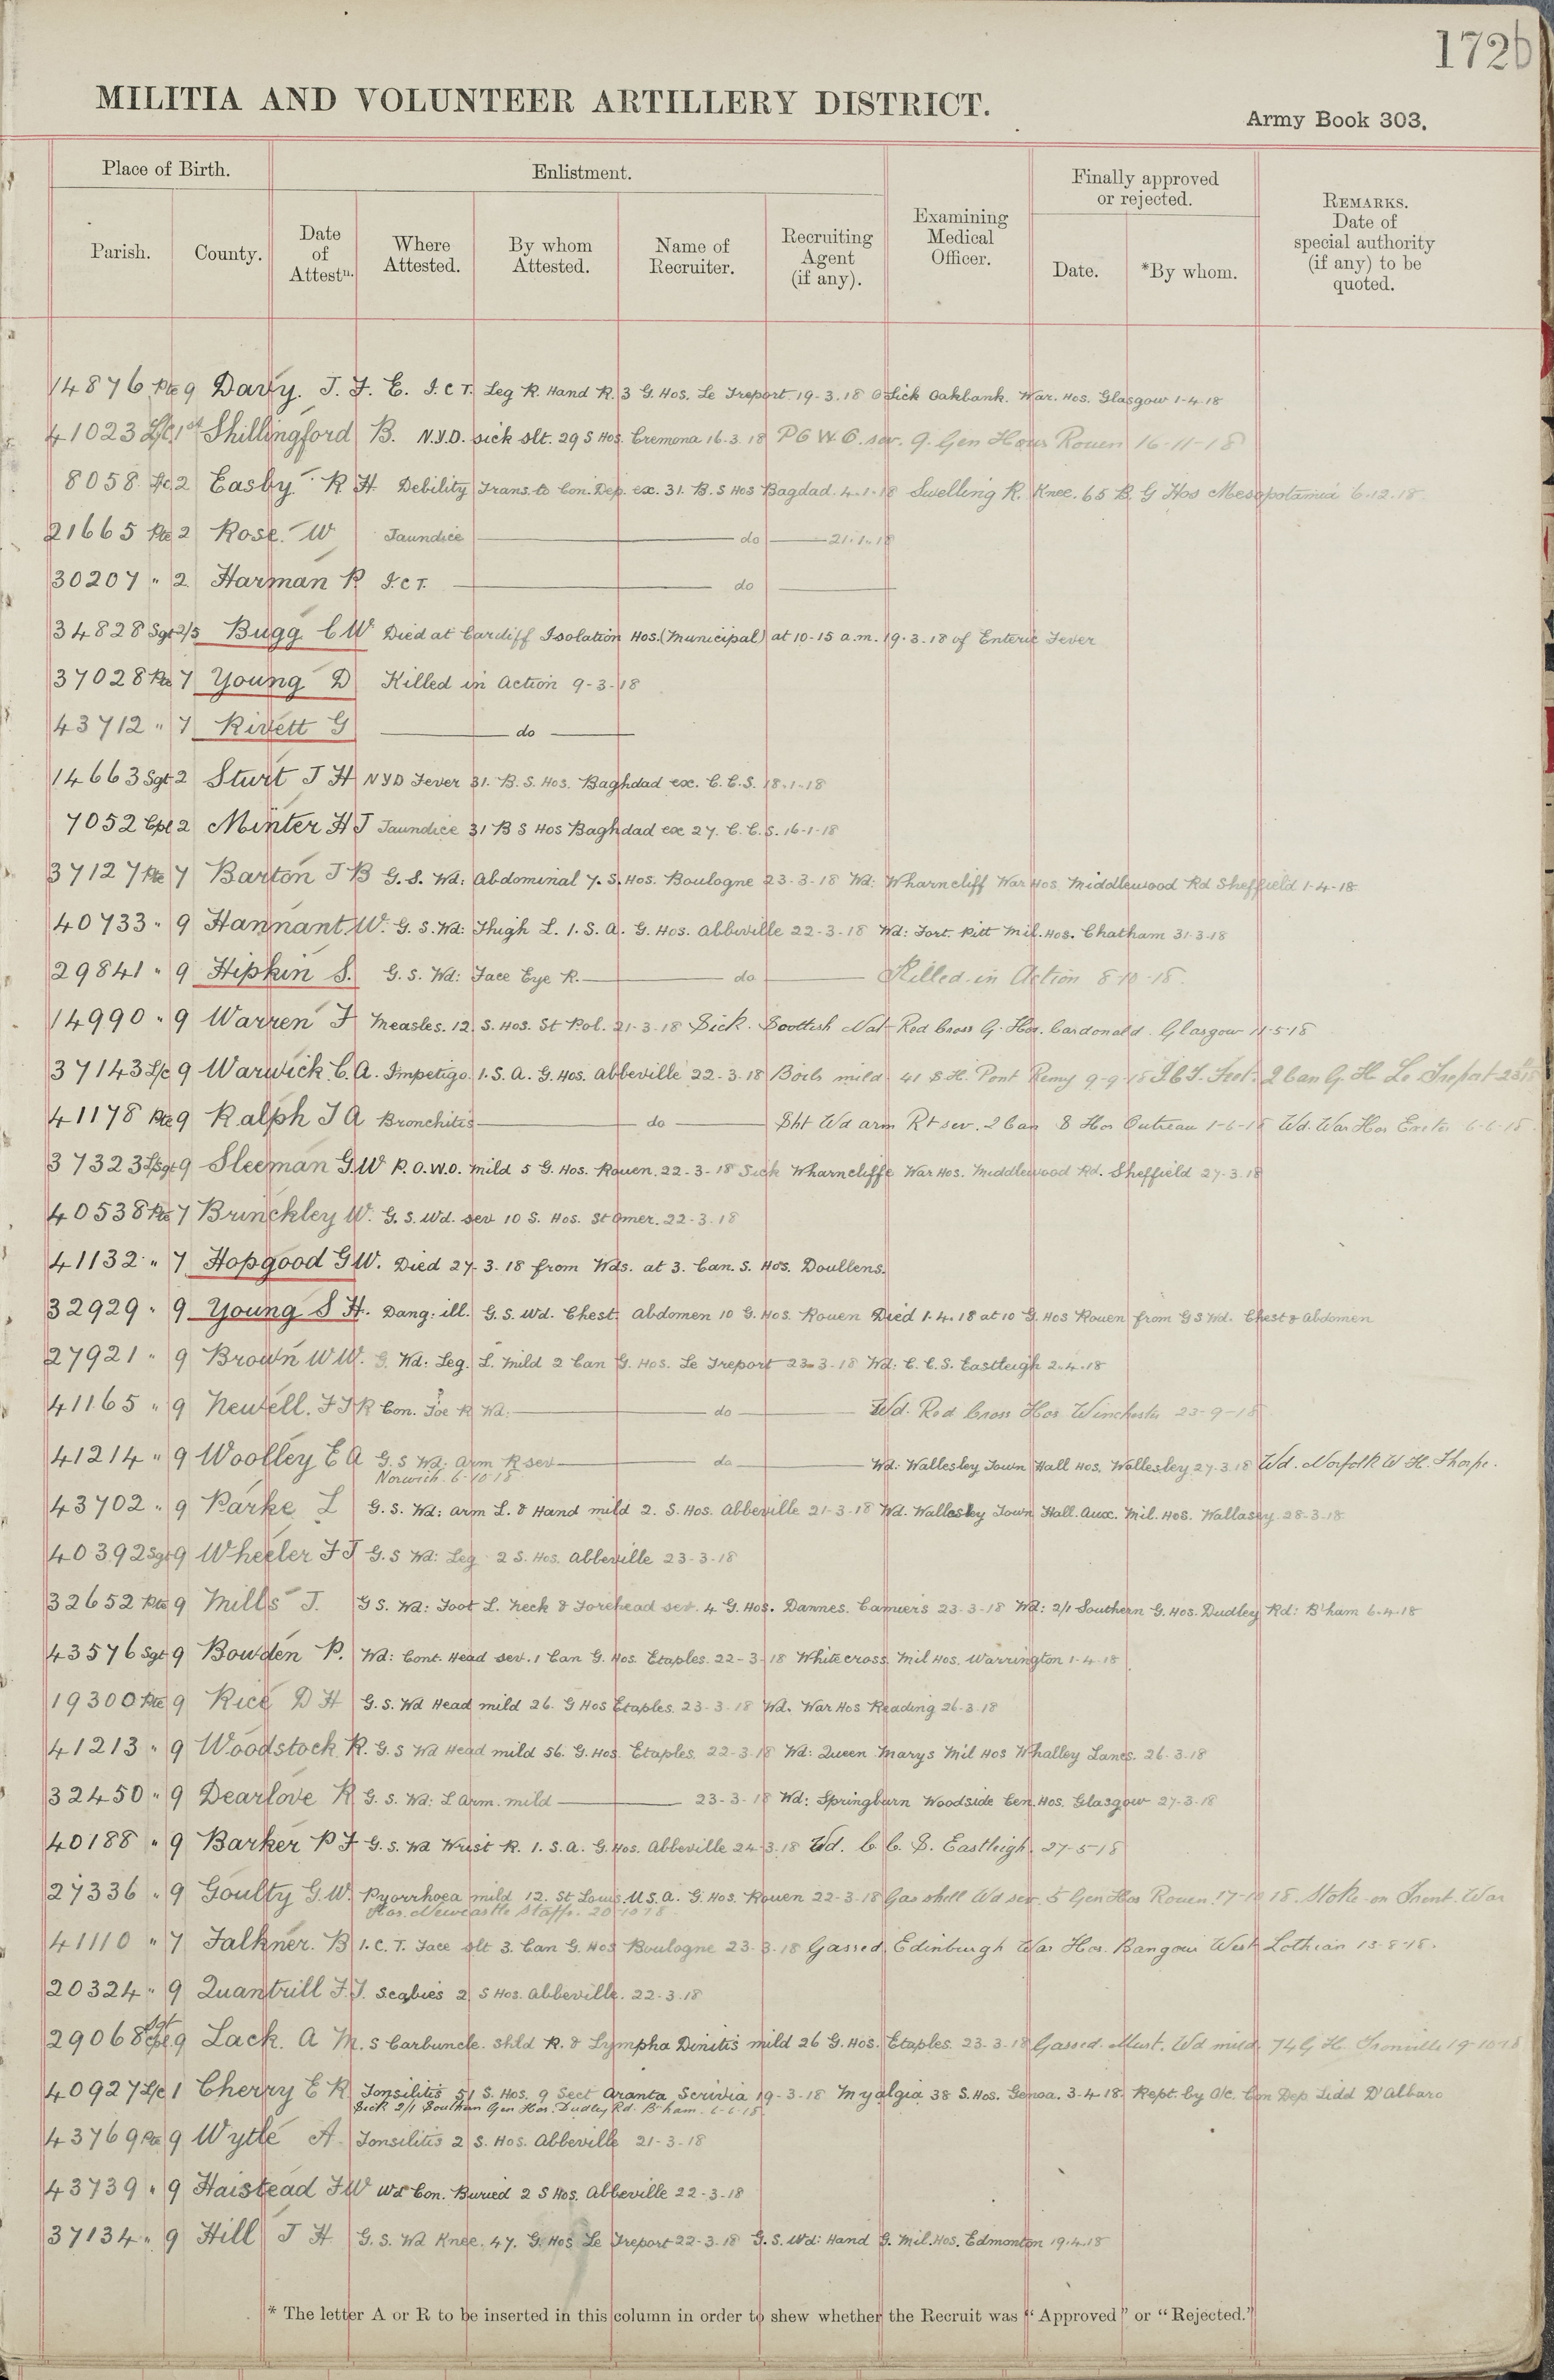 172b
MILITIA AND VOLUNTEER ARTILLERY DISTRICT.
Army Book 303.
Place of Birth.
Enlistment.
Examining Medical Officer.
Finally approved or rejected.
REMARKS. Date of special authority (if any) to be quoted.
Parish.
County.
Date of Attestn.
Where Attested.
By whom Attested.
Name of Recruiter.
Recruiting Agent (if any).
Date.
*By whom.
14876 Pte 9 Davy. J. F. E. I.C.T. Leg R. Hand R. 3 G. Hos. Le Treport. 19-3.18 Sick Oakbank. War. Hos. Glasgow 1-4-18
41023 L/C 1st Shillingford B. N.Y.D. sick slt. 29 S Hos. Cremona 16-3.18 P G W O. sev. 9. Gen Hos Rouen 16-11-18
8058 L/C 2 Easby R H Debility Trans. to Con. Dep. ex. 31. B. S Hos Bagdad. 4-1-18 Swelling R. Knee. 65 B. G Hos Mesopotamia 6.12.18.
21665 Pte 2 Rose. W Jaundice do 21.1.18
30207 " 2 Harman R I.C.T. do
34828 Sgt 2/5 Bugg C W Died at Cardiff Isolation Hos. (Municipal) at 10-15 a.m. 19-3.18 of Enteric Fever
37028 Pte 7 Young D Killed in Action 9-3-18
43712 " 7 Rivett G do
14663 Sgt 2 Sturt J H NYD Fever 31. B. S. Hos. Baghdad ex. C.C.S. 18.1-18
7052 Cpl 2 Minter H J Jaundice 31 B S Hos Baghdad ex 27. C.C.S. 16-1-18
37127 Pte 7 Barton J B G.S. Wd: Abdominal 7. S. Hos. Boulogne 23-3-18 Wd: Wharncliff War Hos Middlewood Rd Sheffield 1-4-18
40733 " 9 Hannant. W. G.S. Wd: Thigh L. 1. S. A. G. Hos. Abbeville 22-3-18 Wd: Fort. Pitt Mil. Hos. Chatham 31.3.18
29841 " 9 Hipkin S. G.S. Wd: Face Eye R. do Killed in Action 8-10-18.
14990 " 9 Warren F Measles. 12. S. Hos. St Pol. 21-3-18 Sick. Scottish Nat Red Cross G. Hos. Cardonald. Glasgow 11-5-18
37143 L/c 9 Warwick. C. A. Impetigo. 1. S. A. G. Hos. Abbeville 22-3.18 Boils mild 41 S. H. Pont Remy 9-9-18 I.C.T. Feet. 2 Can G. H. Le Treport
41178 Pte 9 Ralph J A Bronchitis do Sht Wd arm Rt sev. 2 Can S Hos Outreau 1-6-18 Wd. War Hos Exeter 6-6-18.
37323 L/Sgt 9 Sleeman G.W P.O.W.O. mild 5 G. Hos. Rouen. 22-3-18 Sick Wharncliffe War Hos. Middlewood Rd. Sheffield 27-3.18
40538 Pte 7 Brinckley W. G.S. Wd. sev 10 S. Hos. St Omer. 22-3.18
41132 " 7 Hopgood G W. Died 27-3.18 from Wds. at 3. Can. S. Hos. Doullens.
32929 " 9 Young S H. Dang: ill. G.S. Wd. Chest. Abdomen 10 G. Hos. Rouen Died 1.4.18 at 10 G. Hos Rouen from G S Wd. Chest & Abdomen
27921 " 9 Brown W W. G. Wd: Leg. L. Mild 2 Can G. Hos. Le Treport 23-3-18 Wd: C. C. S. Eastleigh 2.4.18
41165 " 9 Newell. F J R Con. Toe R Wd: do Wd. Red Cross Hos Winchester 23-9-18
41214 " 9 Woolley E A G.S Wd. Arm R sev do Wd: Wallesley Town Hall Hos. Wallesley 27.3.18 Wd. Norfolk W. H. Thorpe.
Norwich. 6-10-18
43702 " 9 Parke L G.S. Wd: Arm L. & Hand mild 2. S. Hos. Abbeville 21-3-18 Wd. Wallasey Town Hall. Aux. Mil. Hos. Wallasey 28-3.18
40392 Sgt 9 Wheeler F J G.S Wd: Leg. 2 S. Hos. Abbeville 23-3-18
32652 Pte 9 Mills J. G S. Wd: Foot L. Neck & Forehead sev. 4 G. Hos. Dannes. Camiers 23-3-18 Wd: 2/1 Southern G. Hos. Dudley Rd: B'ham 6-4-18
43576 Sgt 9 Bowden P. Wd: Cont. Head sev. 1 Can G. Hos. Etaples. 22-3-18 Whitecross Mil Hos. Warrington 1-4-18
19300 Pte 9 Rice D H G.S. Wd Head mild 26. G Hos Etaples. 23-3-18 Wd. War Hos Reading 26.3.18
41213 " 9 Woodstock R. G.S Wd Head mild 56. G. Hos. Etaples. 22-3.18 Wd: Queen Marys Mil Hos Whalley Lancs. 26-3.18
32450 " 9 Dearlove R G.S. Wd: L Arm. mild 23-3-18 Wd: Springburn Woodside Cen. Hos. Glasgow 27-3.18
40188 " 9 Barker P J G.S. Wd Wrist R. 1. S. A. G. Hos. Abbeville 24-3.18 Wd. C. C. S. Eastleigh. 27-5-18
27336 " 9 Goulty G.W. Pyorrhoea mild 12. St Louis U.S.A. G. Hos. Rouen 22-3-18 Gas shell Wd sev. 5 Gen Hos Rouen. 17-10 18. Stoke on Trent. War
Hos. Newcastle Staffs. 20-10 18.
41110 " 7 Falkner. B I.C.T. Face slt 3. Can G. Hos Boulogne 23-3-18 Gassed. Edinburgh War Hos. Bangour West Lothian 13-8-18.
20324 " 9 Quantrill F. J. Scabies 2 S Hos. Abbeville. 22-3.18
Sgt
29068 Cpl 9 Lack. A M. S Carbuncle. shld R. & Lympha Dinitis mild 26 G. Hos. Etaples. 23-3-18 Gassed. Must. Wd mild. 74 G H. Tronville 19-10-18
40927 L/c 1 Cherry E R Tonsilitis 51 S. Hos. 9 Sect Aranta Scrivia 19-3-18 Myalgia 38 S. Hos. Genoa. 3-4-18. Rept. by O/c. Con Dep Lidd D'Albaro
Sick 2/1 Southern Gen Hos. Dudley Rd. B'ham. 6-6-18
43769 Pte 9 Wytle A. Tonsilitis 2 S. Hos. Abbeville 21-3-18
43739 " 9 Haistead F W Wd Con. Buried 2 S Hos. Abbeville 22-3-18
37134 " 9 Hill J H G.S. Wd Knee. 47. G. Hos Le Treport 22-3.18 G.S. Wd: Hand G. Mil. Hos. Edmonton 19.4.18
* The letter A or R to be inserted in this column in order to shew whether the Recruit was "Approved" or "Rejected."